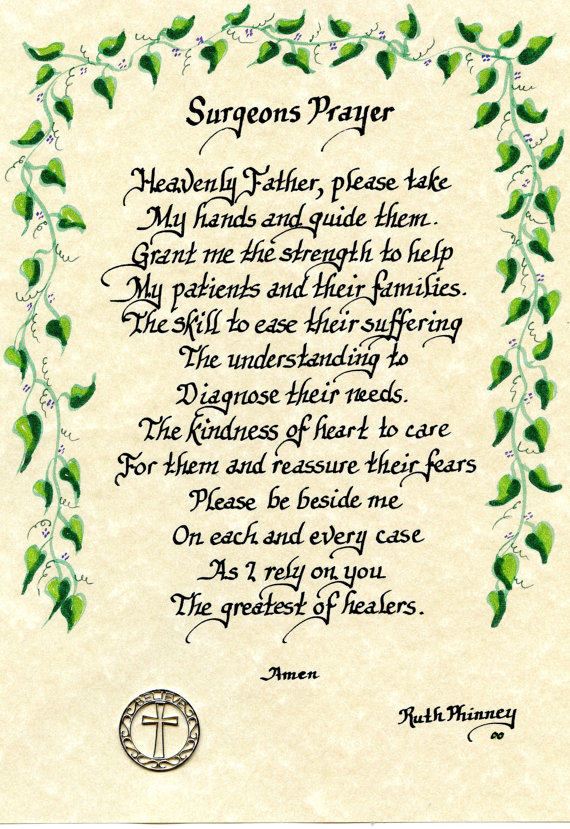 Surgeons Prayer
Heavenly Father, please take
My hands and guide them.
Grant me the strength to help
My patients and their families.
The skill to ease their suffering
The understanding to
Diagnose their needs.
The kindness of heart to care
For them and reassure their fears
Please be beside me
On each and every case
As I rely on you
The greatest of healers.
Amen
BELIEVE
Ruth Phinney